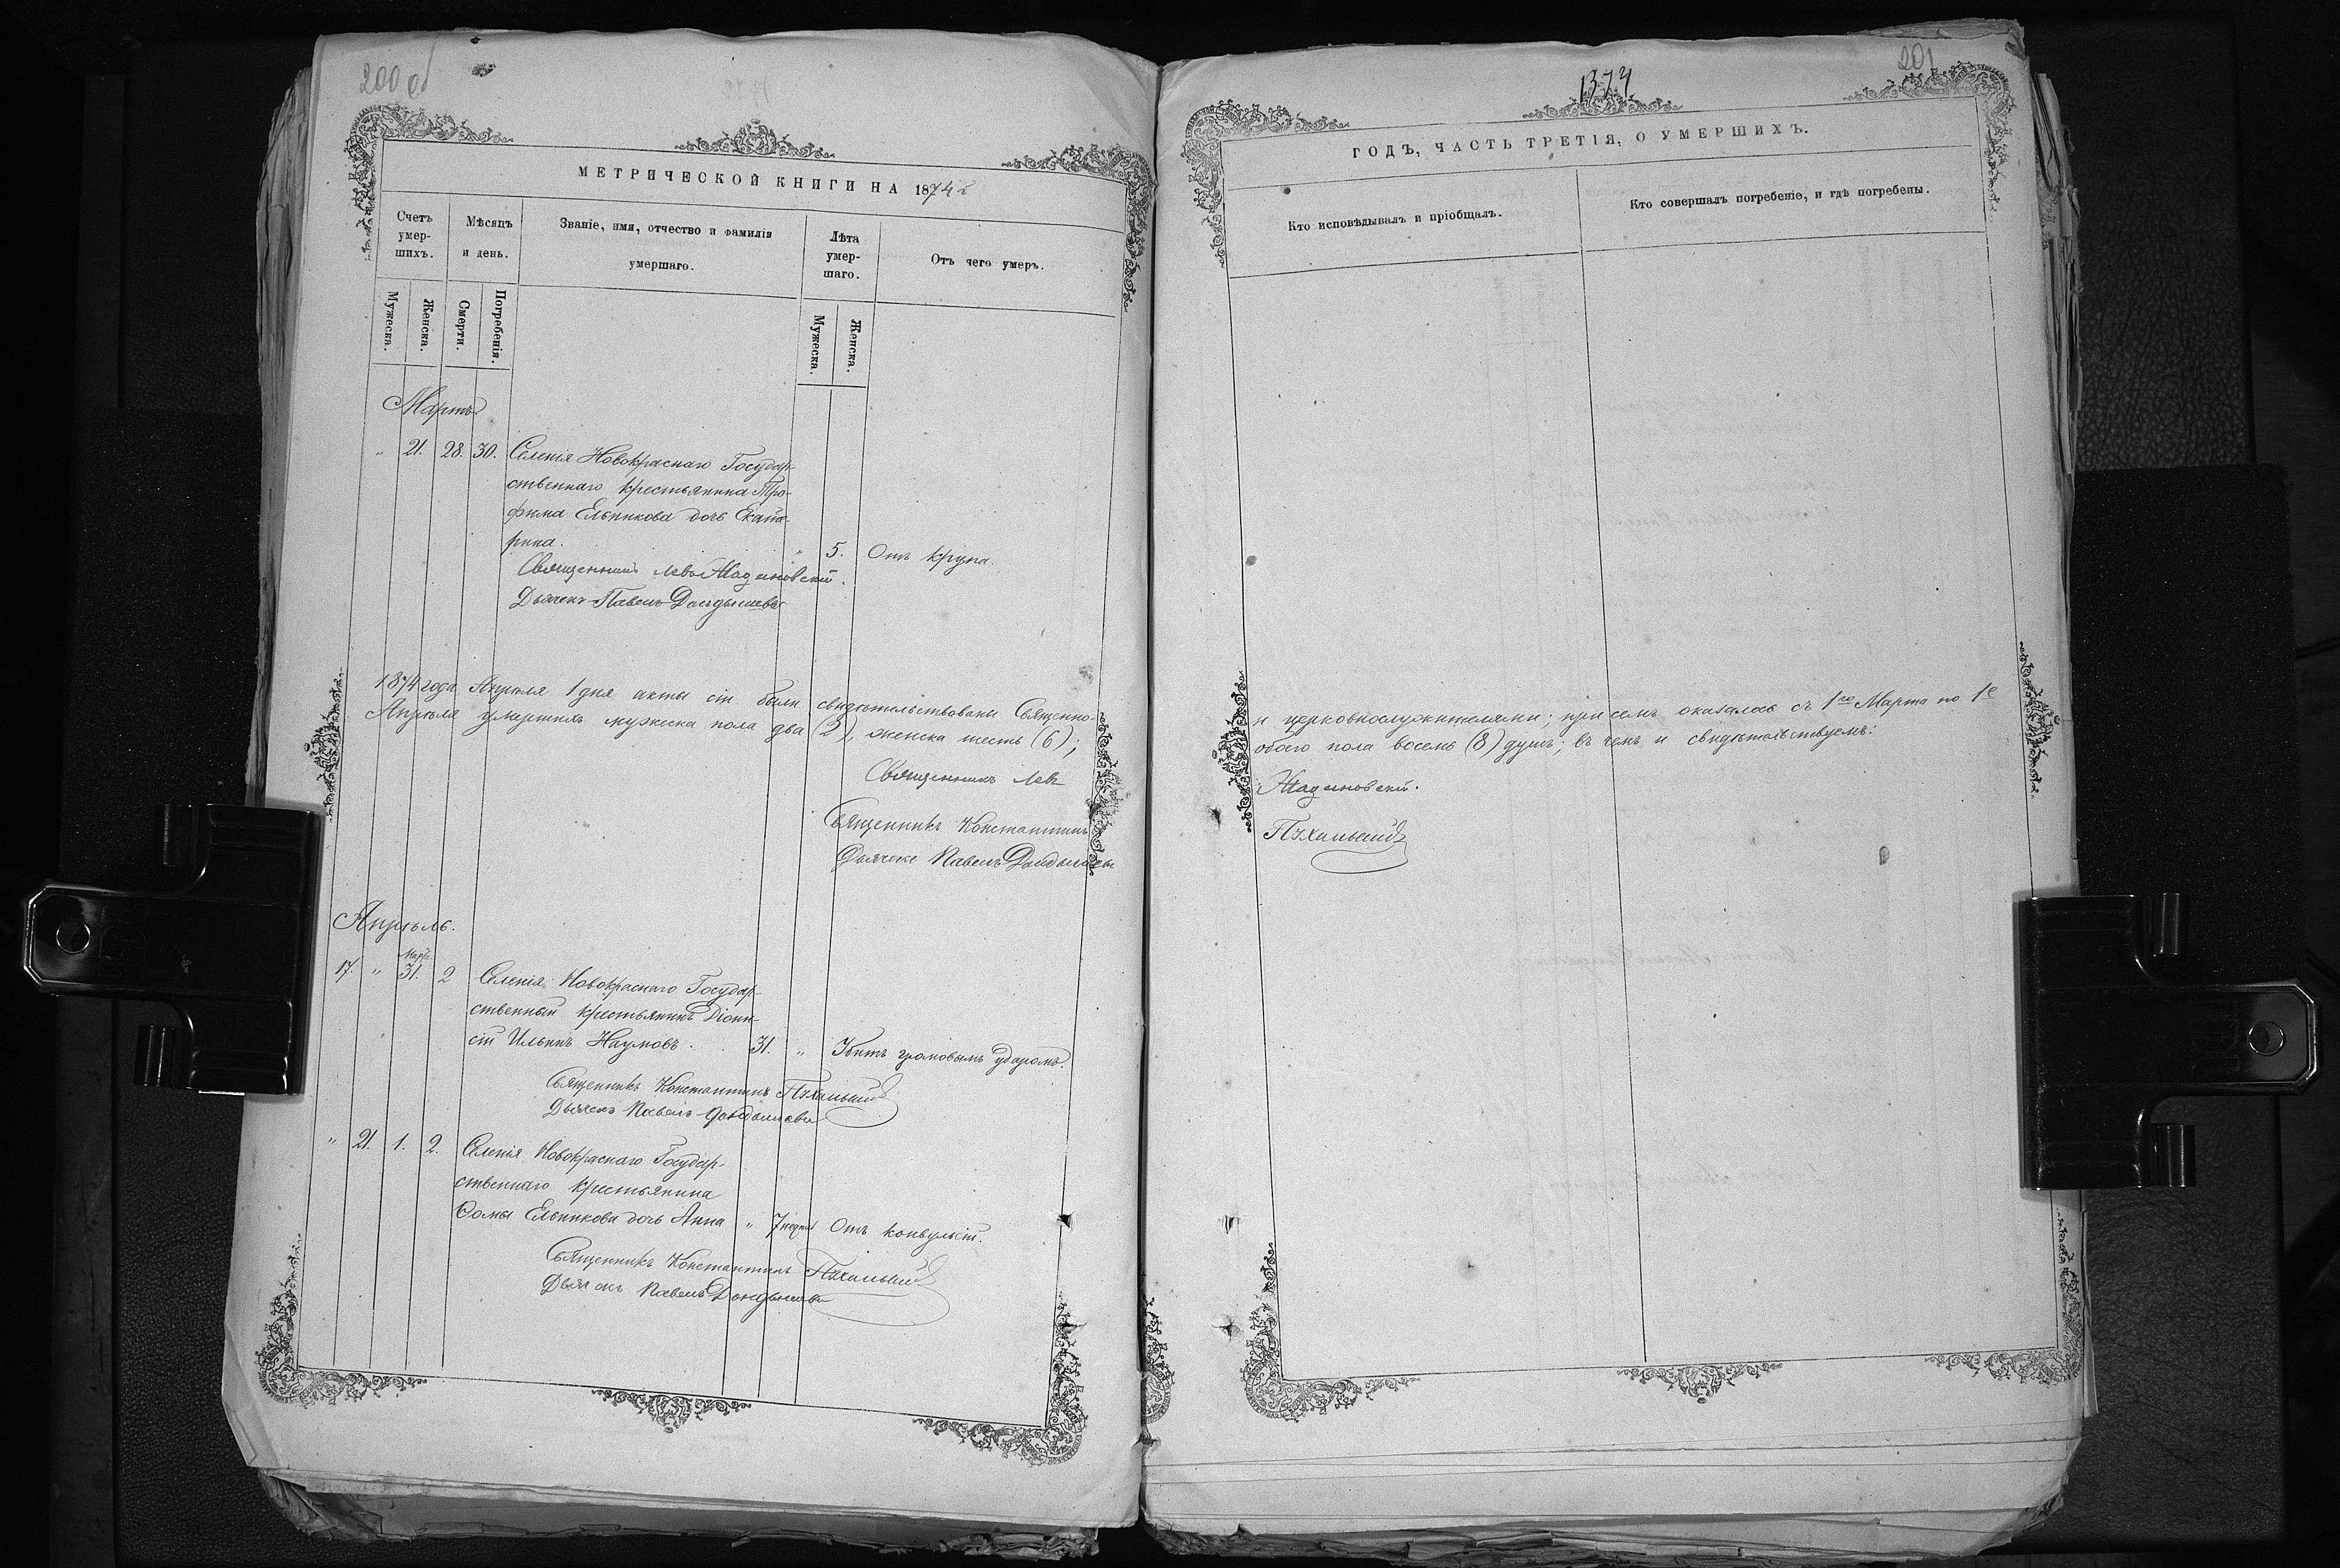 200 об
МЕТРИЧЕСКОЙ КНИГИ НА 1874
Счетъ умер-шихъ.
Мѣсяцъ и день.
Званіе, имя, отчество и фамилія умершаго.
Лѣта умер-шаго.
Отъ чего умеръ.
Мужеска.
Женска.
Смерти.
Погребенія.
Мужеска.
Женска.
Мартъ
„ 21. 28. 30. Селенія Новокраснаго Государ-
ственнаго крестьянина Тро-
фима Ельникова дочь Екате-
рина. „ 5. Отъ крупа.
Священникъ Левъ
Дьячекъ Павелъ
1874 года Апрѣля 1 дня акты сіи были свидѣтельствованы Священно-
Апрѣля умершихъ мужеска пола два (2), женска шесть (6);
Священникъ Левъ
Священникъ Константинъ
Дьячекъ Павелъ
Апрѣль.
Март.
17. „ 31. 2 Селенія Новокраснаго Государ-
ственный крестьянинъ Діони-
сій Ильинъ Наумовъ. 31. „ Убитъ громовымъ ударомъ.
Священникъ Константинъ
Дьячекъ Павелъ
„ 21. 1. 2. Селенія Новокраснаго Государ-
ственнаго крестьянина
Ѳомы Ельникова дочь Анна „ 7 недѣл Отъ конвульсій.
Священникъ Константинъ
Дьячекъ Павелъ
1374
201
ГОДЪ, ЧАСТЬ ТРЕТІЯ, О УМЕРШИХЪ.
Кто исповѣдывалъ и пріобщалъ.
Кто совершалъ погребеніе, и гдѣ погребены.
и церковнослужителями; при семъ оказалось съ 1го Марта по 1е
обоего пола восемь (8) душъ; въ чемъ и свидѣтельствуемъ: